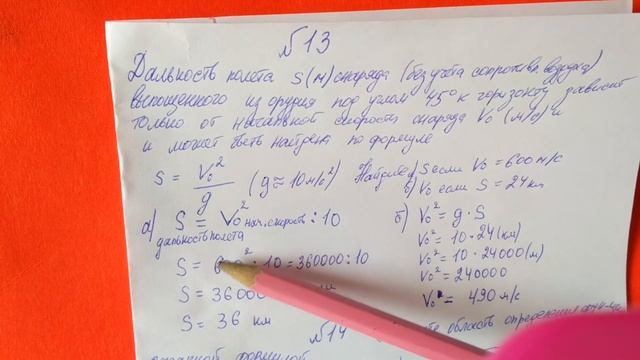 №13
Дальность полета S(м) снаряда (без учёта сопротивл. воздуха)
выпущенного из орудия под углом 45° к горизонту зависит
только от начальной скорости снаряда V₀ (м/с) и
и может быть найдена по формуле
S = V₀²/g (g ≈ 10 м/с²) Найдите а) S если V₀ = 600 м/с
б) V₀ если S = 24 км
а) S = V₀² нач. скорость : 10
дальность полета
S = 600² : 10 = 360000 : 10
S = 36000
S = 36 км
б) V₀² = g · S
V₀² = 10 · 24 (км)
V₀² = 10 · 24000 (м)
V₀² = 240000
V₀² = 490 м/с
№14
область определения